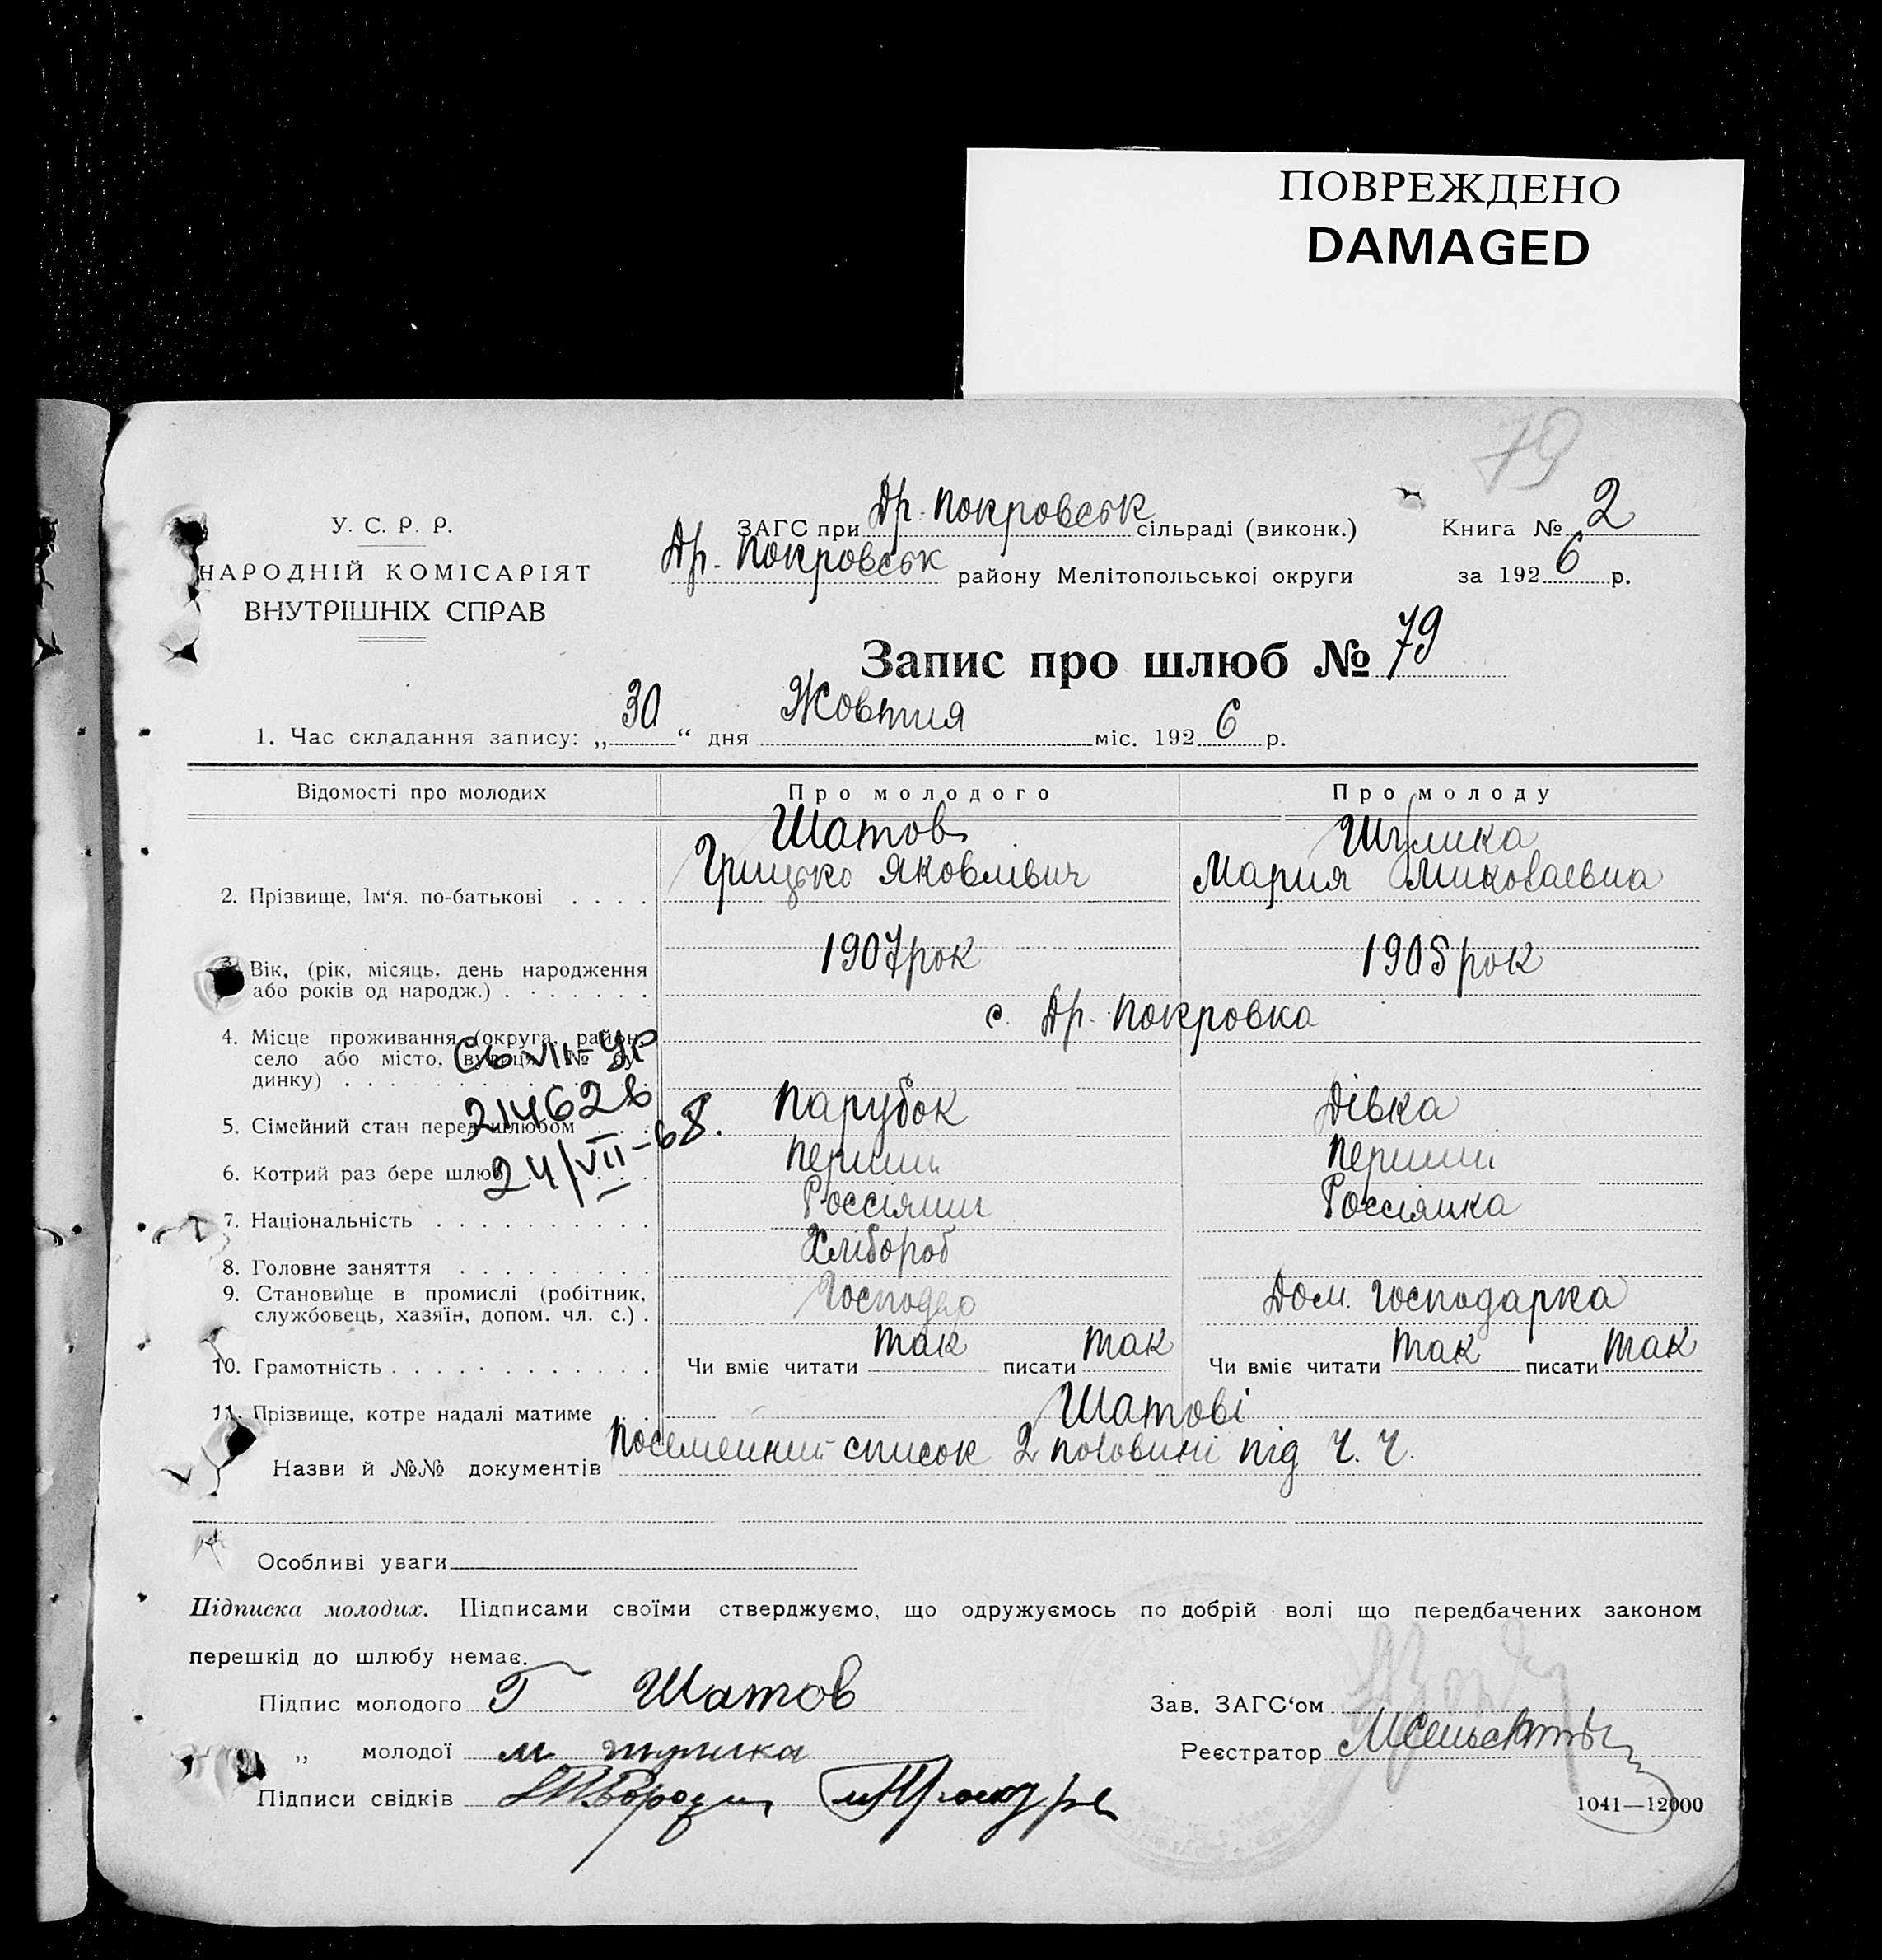 ПОВРЕЖДЕНО
DAMAGED
79
У. С. Р. Р.
НАРОДНІЙ КОМІСАРІЯТ
ВНУТРІШНІХ СПРАВ
ЗАГС при Др. Покровськ сільраді (виконк.)
Др. Покровськ району Мелітопольської округи
Книга № 2
за 1926 р.
Запис про шлюб № 79
1. Час складання запису: „30“ дня Жовтня міс. 1926 р.
Відомості про молодих Про молодого Про молоду
Шатов Шулика
2. Прізвище, Ім‘я, по-батькові . . . . Грицько Яковлівич Мария Миколаевна
3. Вік, (рік, місяць, день народження 1907 рок 1905 рок
або років од народж.) . . . . . . .
с. Др. Покровка
4. Місце проживання (округа, район,
село або місто, вулиця, № бу-
динку) . . . . . . . . . . . . .
5. Сімейний стан перед шлюбом . . . Парубок Дівка
6. Котрий раз бере шлюб . . . . . Перший Перший
7. Національність . . . . . . . . . . Россіянин Россіянка
8. Головне заняття . . . . . . . . . Хлібороб
9. Становище в промислі (робітник, Господар Дом. господарка
службовець, хазяїн, допом. чл. с.) .
10. Грамотність . . . . . . . . . . . . Чи вміє читати так писати так Чи вміє читати так писати так
11. Прізвище, котре надалі матиме . . Шатові
Назви й №№ документів Посемейний список 2 половині під Ч. Ч.
VII-УР
214628
24/VII-68.
Особливі уваги
Підписка молодих. Підписами своїми стверджуємо, що одружуємось по добрій волі що передбачених законом
перешкід до шлюбу немає.
Підпис молодого Г Шатов
„ молодої М Шулика
Підписи свідків
Зав. ЗАГС‘ом
Реєстратор
1041—12000